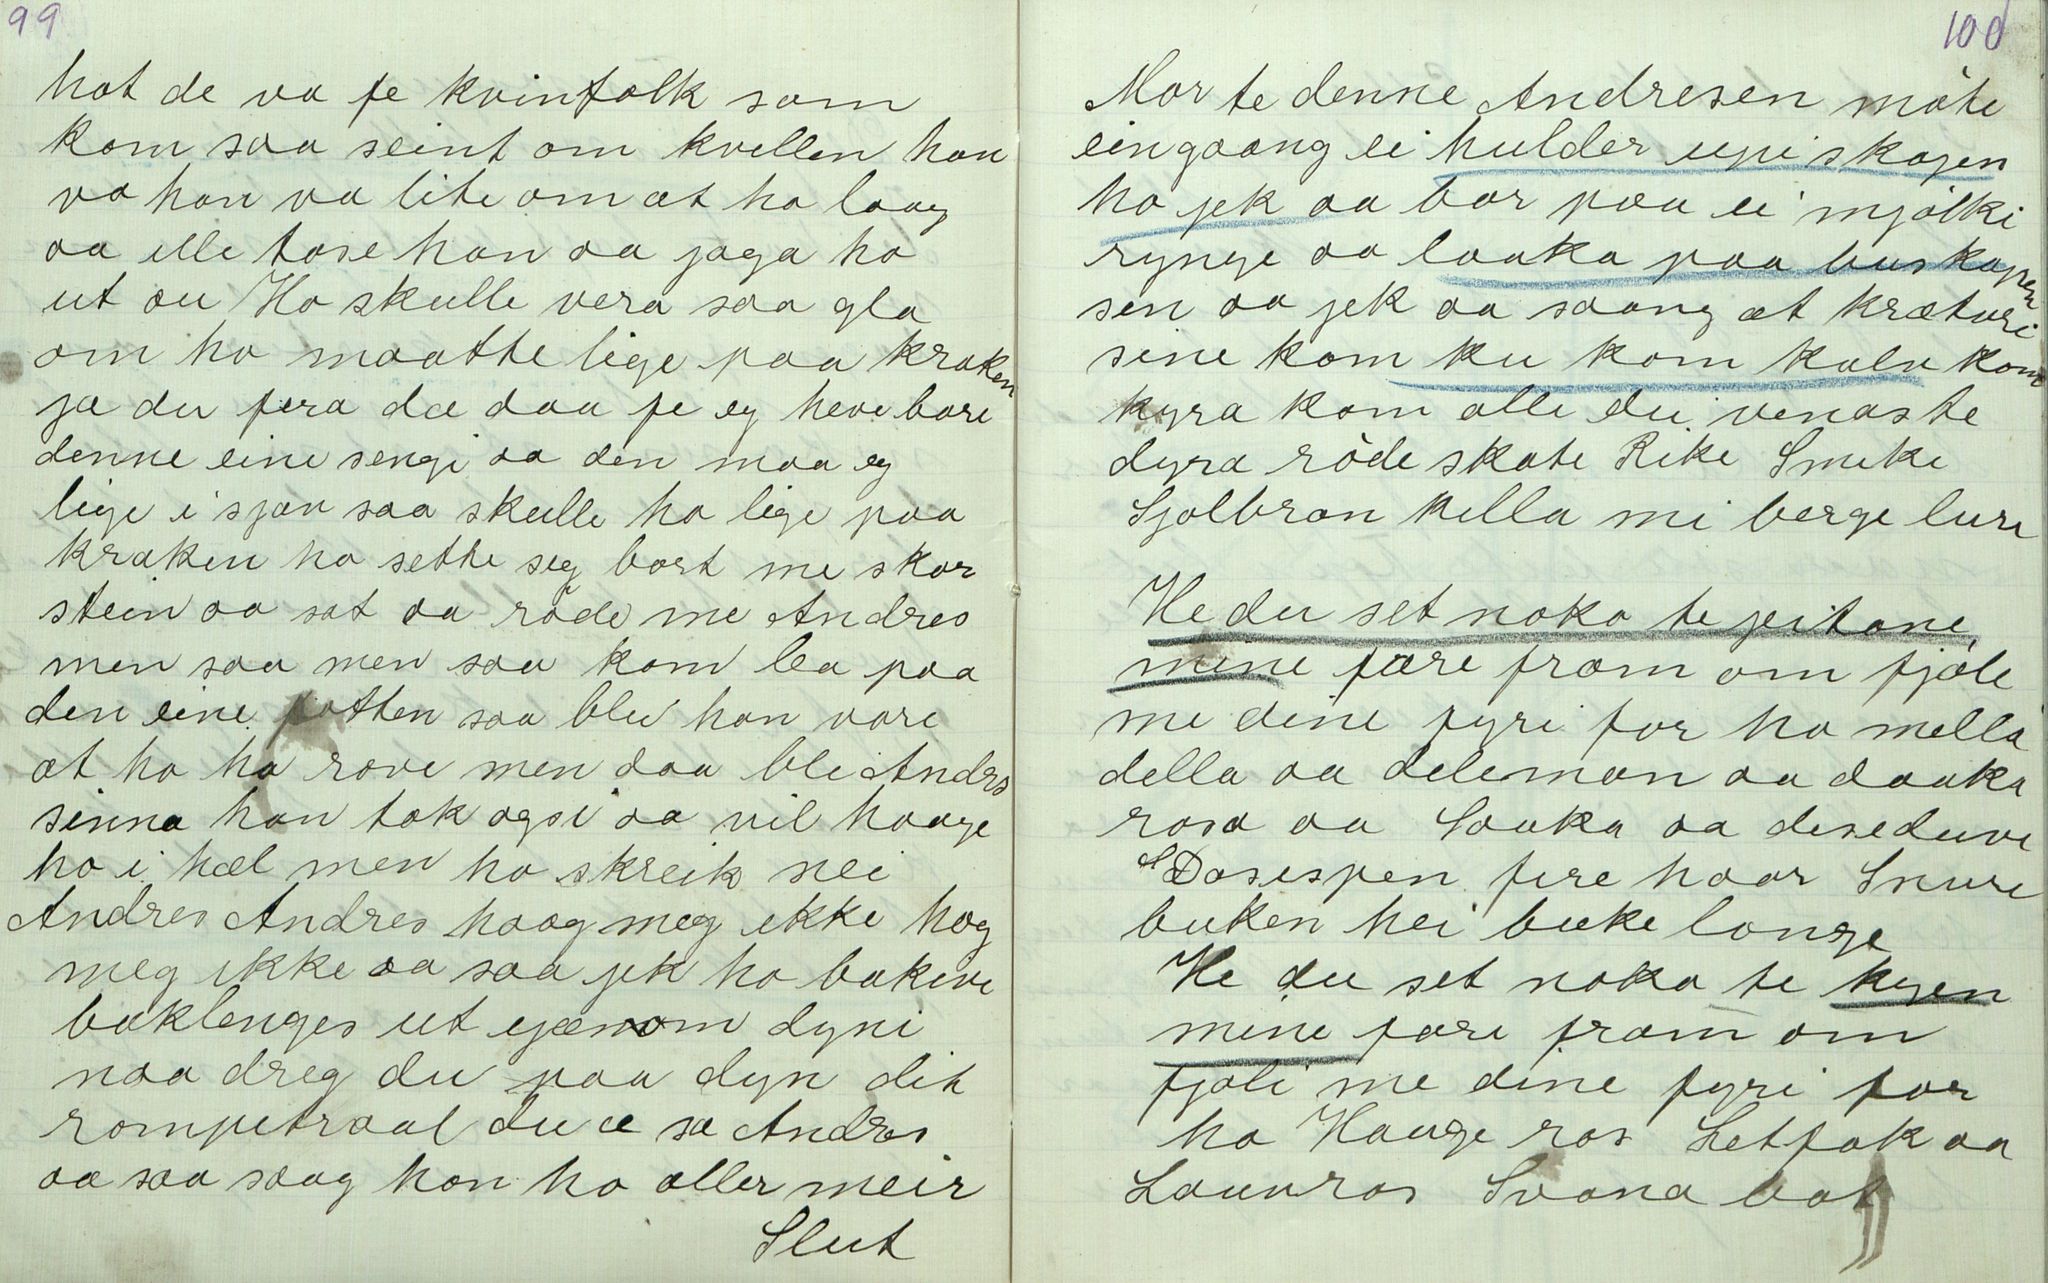 99
hot de va fe kvinfolk som
kom saa seint om kvellen han
va han va lite om at ho laag
aa ille tose han aa jaga ho
ut au Ho skulle vera saa gla
om ho maatte lige paa kraken
ja du fera dæ daa fe eg heve bare
denne eine sengi aa den maa eg
lige i sjøv saa skulle ho lige paa
kraken ho sette seg bort me skor
stein aa sat aa røde me Andres
men saa men saa kom lea paa
den eine potten saa blei han vare
at ho ha rove men daa blei Andres
sinna han tok øgsi aa vil haage
ho i hæl men ho skreik nei
Andres Andres haag meg ikke hog
meg ikke aa saa jek ho bakeve
baklenges ut ejænom dyni
naa dreg du paa dyn dit
rompetraal du æ sa Andres
aa saa saag han ho aller meir
Slut
100
Mor te denne Andresen møte
eingaang ei hulder upi skogen
ho jek aa bar paa ei mjølki
rynge aa laaka paa buskapen
sen aa jek aa saang at krætæri
sine kom ku kom kalv kom
kyra kom alle dei venaste
dyra røde skate Rike Smeke
Sjolbran kella mi berge lure
He du set noko te jeitane
mine fære fram om fjøle
me dine fyri for ho mella
della aa delemon aa daaka
rosa aa Saaka aa deseduve
Dosespen fire haar Snure
buken hei buke longe
He du set noko te kyen
mine fare fram om
fjøli me dine fyri for
ho Hauge ros Letfok aa
Lauvros Svana bot